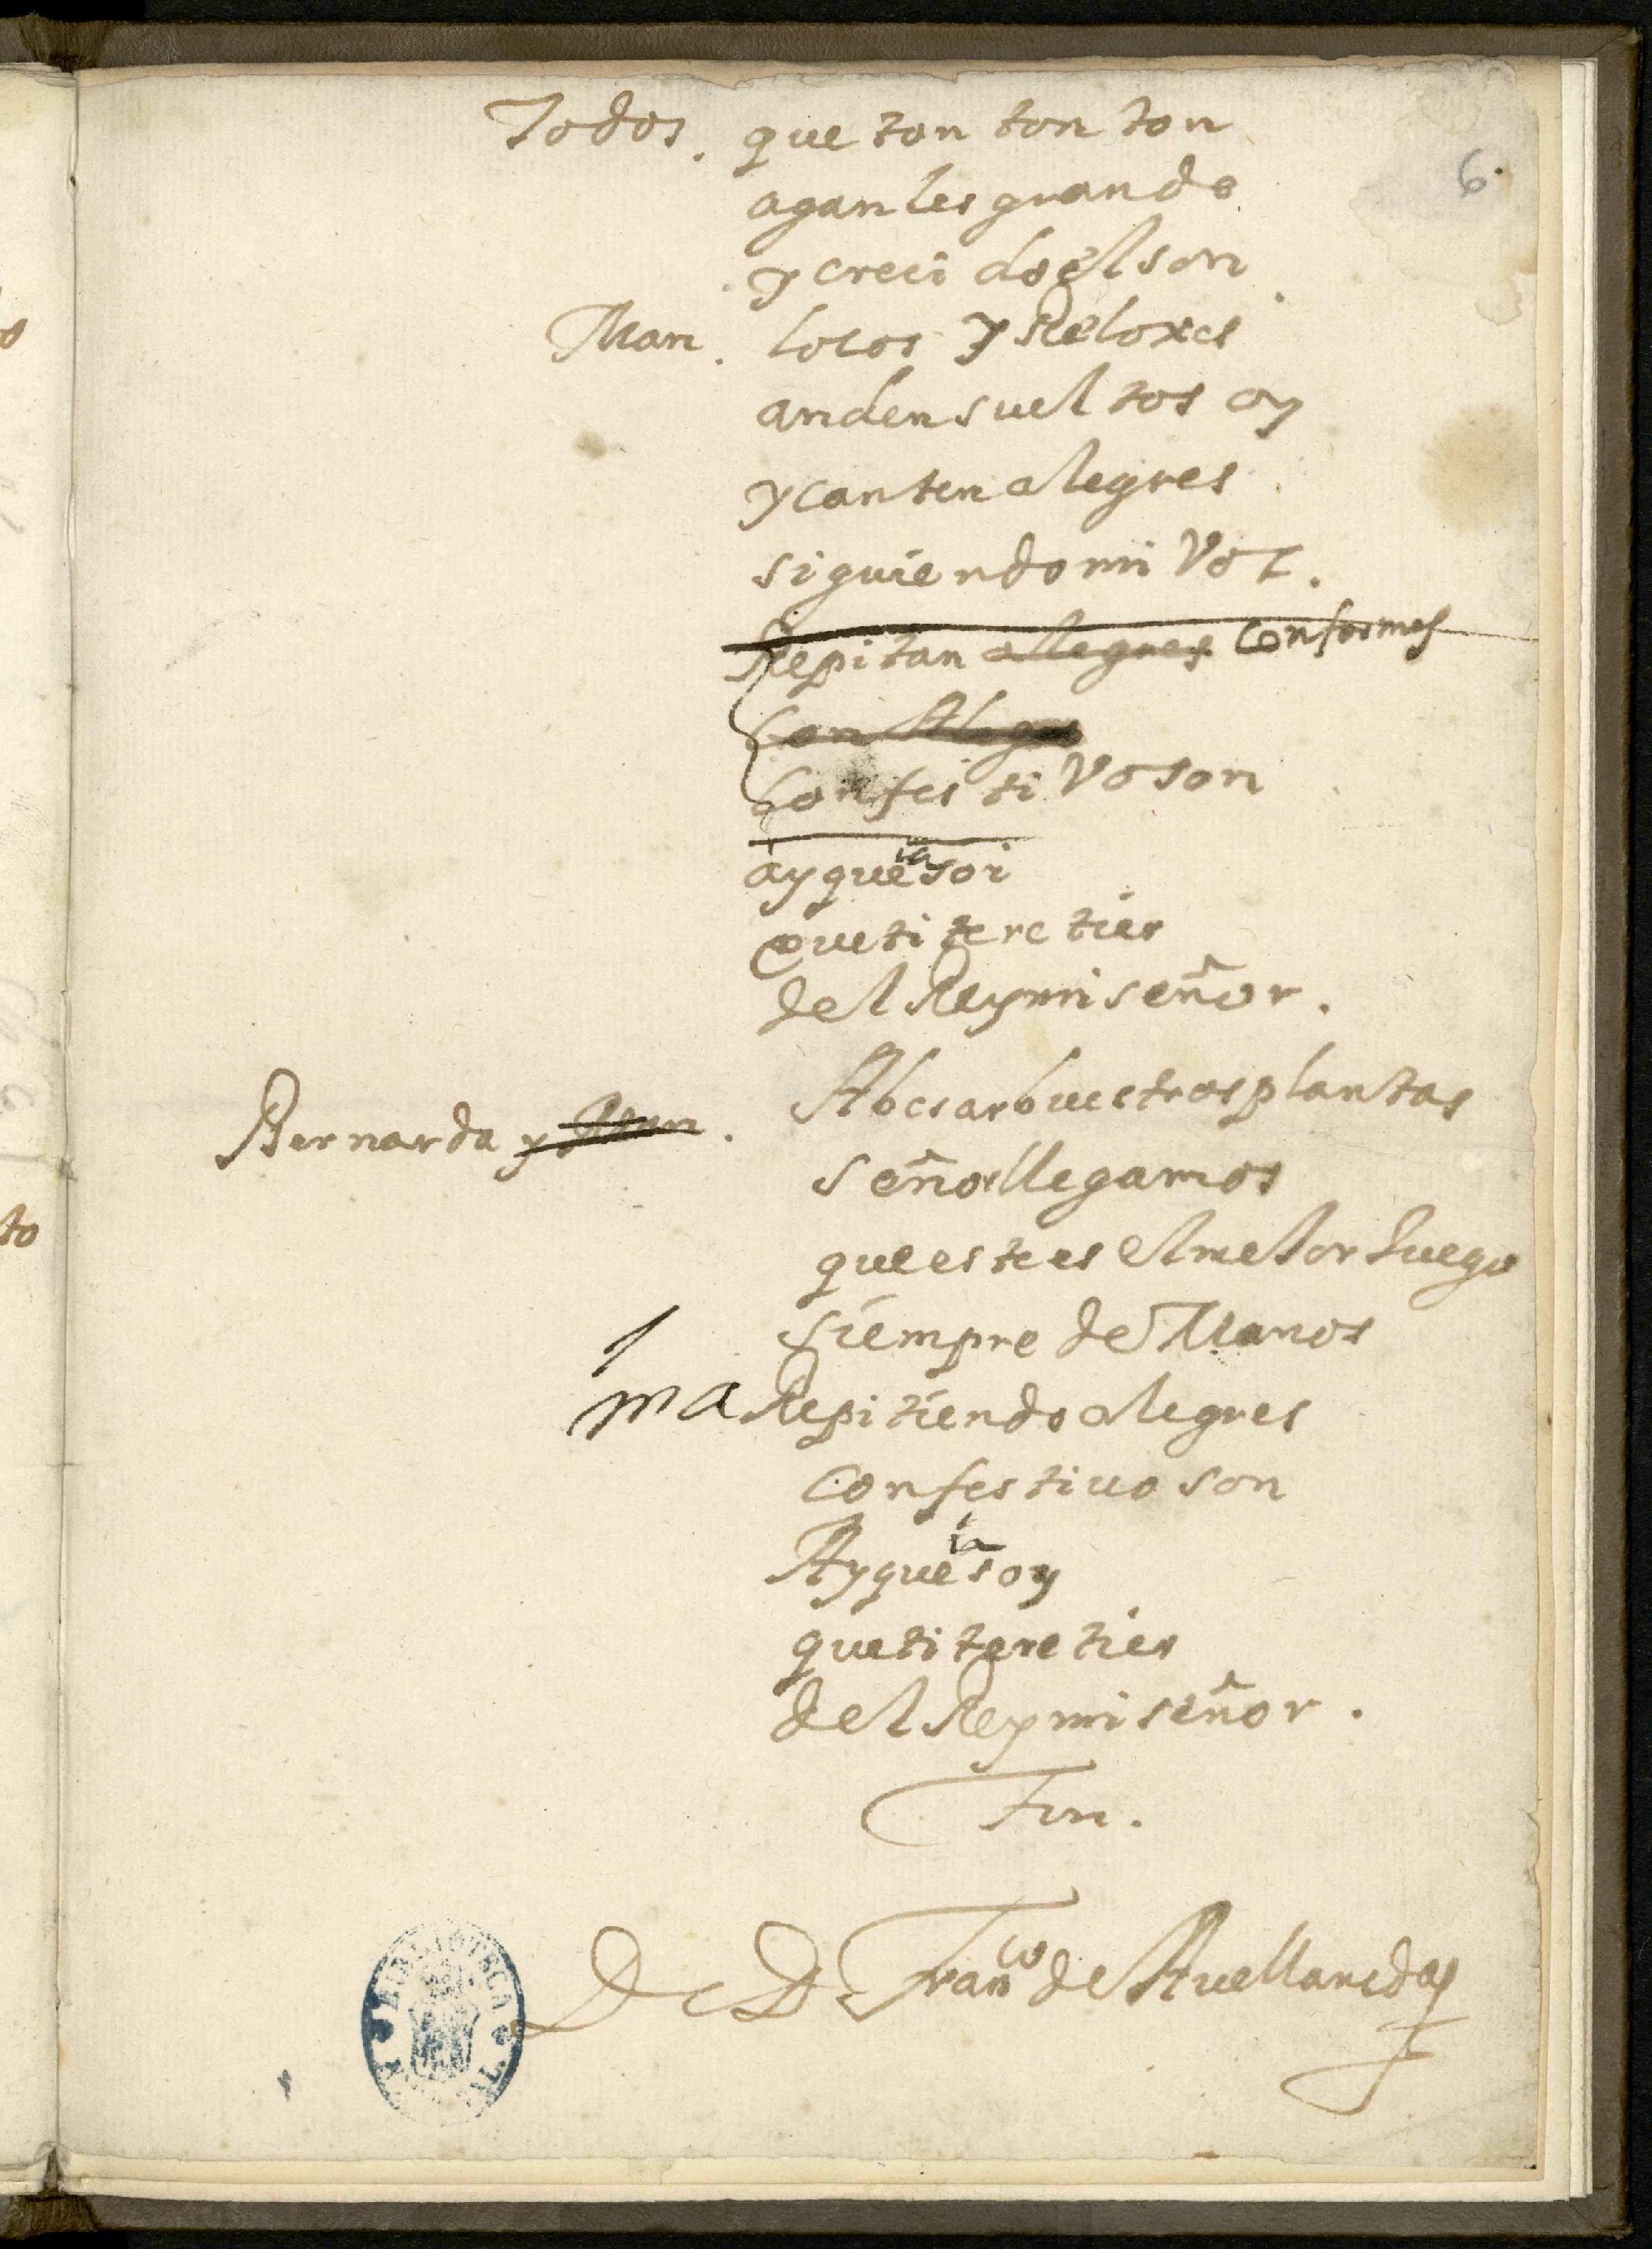 6.
Todos. que ton ton ton
aganles grande
y crecido el son
Man. locos y Reloxes
anden sueltos oy
y canten alegres
siguiendo mi Voz.
Repitan alegres conformes
con Alegre
con festi Vo son
ay que ia soi
que titeretier
del Rey mi señor.
Bernarda y Man. A besar buestras plantas
señor llegamos
que este es el melor Juego
siempre de Manos
ma Repitiendo alegres
con festiuo son
Ay que ia soy
que titeretier
del Rey mi señor.
Fin.
De D Franco de Auellaneda
BIBLIOTECA NACIONAL